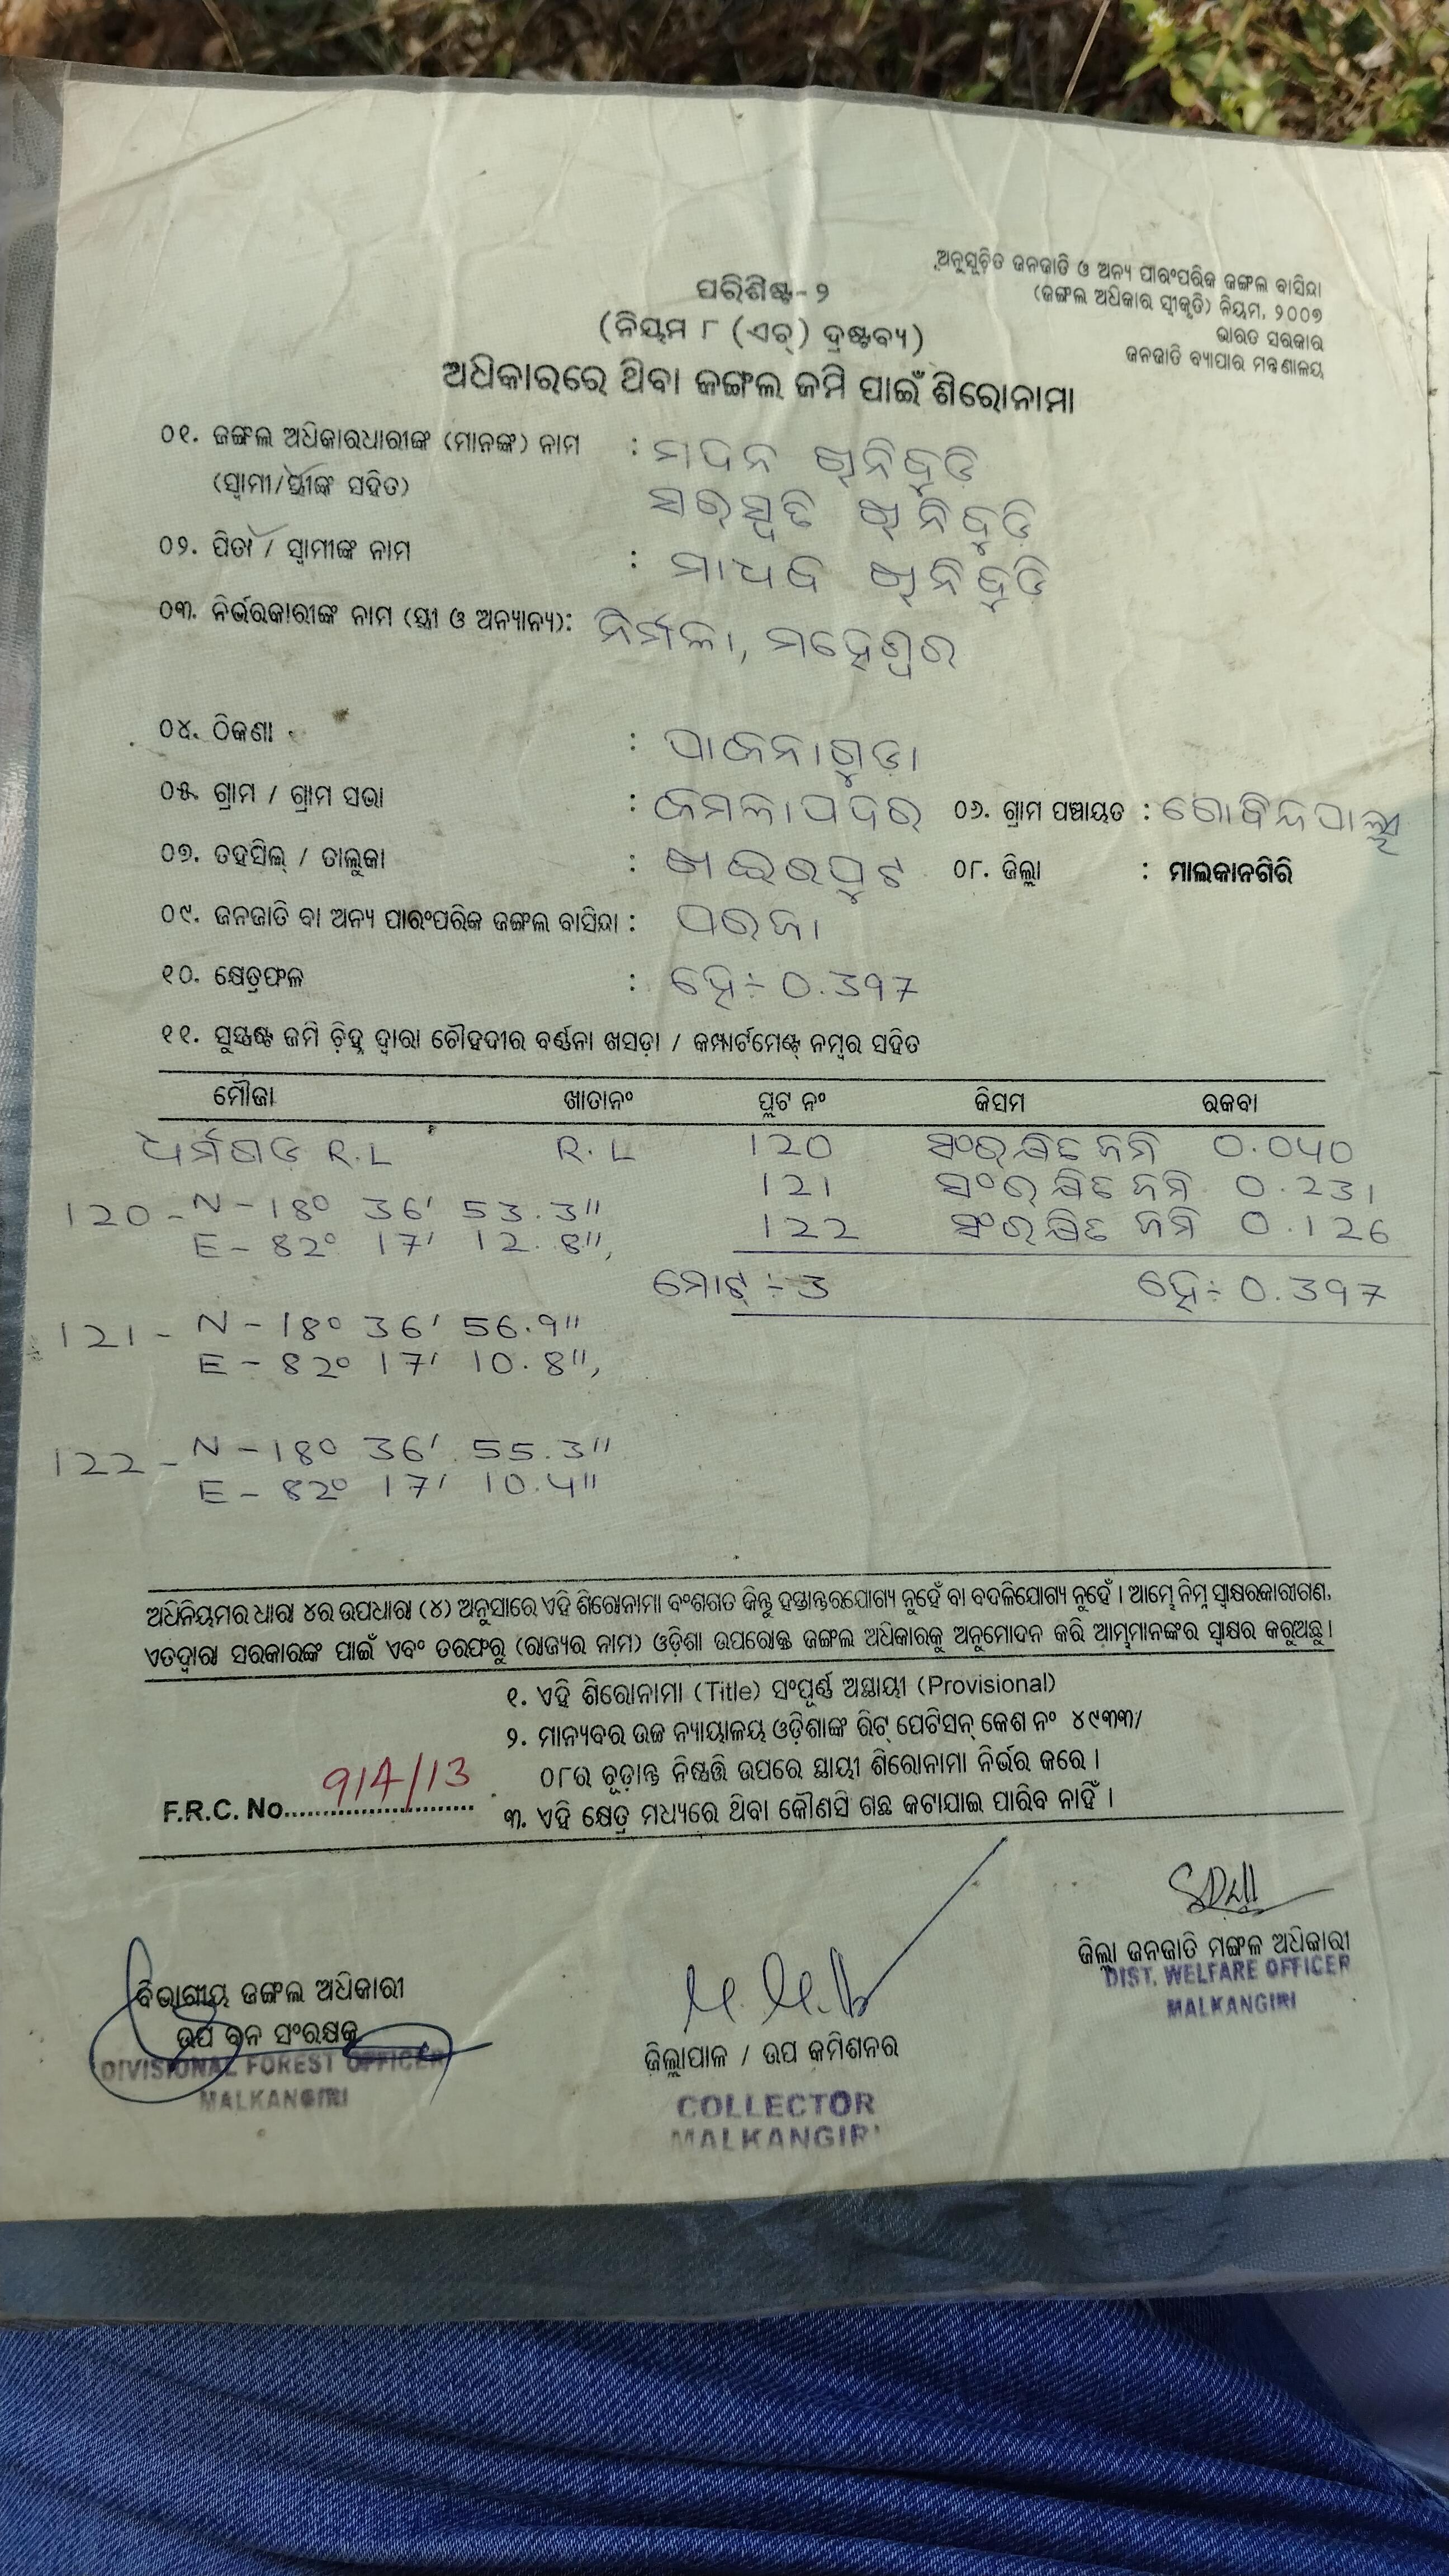 ଅନୁସୂଚିତ ଜନଜାତି ଓ ଅନ୍ୟ ପାରଂପରିକ ଜଙ୍ଗଲ ବାସିନ୍ଦା
(ଜଙ୍ଗଲ ଅଧିକାର ସ୍ୱୀକୃତି) ନିୟମ, ୨୦୦୭
ଭାରତ ସରକାର
ଜନଜାତି ବ୍ୟାପାର ମନ୍ତ୍ରଣାଳୟ
ପରିଶିଷ୍ଟ-୨
(ନିୟମ ୮ (ଏଚ୍) ଦ୍ରଷ୍ଟବ୍ୟ)
ଅଧିକାରରେ ଥିବା ଜଙ୍ଗଲ ଜମି ପାଇଁ ଶିରୋନାମା
୦୧. ଜଙ୍ଗଲ ଅଧିକାରଧାରୀଙ୍କ (ମାନଙ୍କ) ନାମ : ମଦନ ଖିନିବୁଡି
(ସ୍ୱାମୀ/ସ୍ତ୍ରୀଙ୍କ ସହିତ) ସରସ୍ୱତି ଖିନିବୁଡି
୦୨. ପିତା / ସ୍ୱାମୀଙ୍କ ନାମ : ମାଧବ ଖିନିବୁଡି
୦୩. ନିର୍ଭରକାରୀଙ୍କ ନାମ (ସ୍ତ୍ରୀ ଓ ଅନ୍ୟାନ୍ୟ): ନିର୍ମଳା, ମହେଶ୍ୱର
୦୪. ଠିକଣା : ପାକନାଗୁଡା
୦୫. ଗ୍ରାମ / ଗ୍ରାମ ସଭା : କମଳାପଦର ୦୬. ଗ୍ରାମ ପଞ୍ଚାୟତ : ଗୋବିନ୍ଦପାଲ୍ଲୀ
୦୭. ତହସିଲ୍ / ତାଲୁକା : ଖଇରପୁଟ ୦୮. ଜିଲ୍ଲା : ମାଲକାନଗିରି
୦୯. ଜନଜାତି ବା ଅନ୍ୟ ପାରଂପରିକ ଜଙ୍ଗଲ ବାସିନ୍ଦା : ପରଜା
୧୦. କ୍ଷେତ୍ରଫଳ : ହେ÷ 0.397
୧୧. ସୁସ୍ପଷ୍ଟ ଜମି ଚିହ୍ନ ଦ୍ୱାରା ଚୌହଦୀର ବର୍ଣ୍ଣନା ଖସଡ଼ା / କମ୍ପାର୍ଟମେଣ୍ଟ୍ ନମ୍ବର ସହିତ
ମୌଜା ଖାତାନଂ ପ୍ଲଟ ନଂ କିସମ ରକବା
ଧର୍ମଗଡ R.L R.L 120 ସଂରକ୍ଷିତ ଜମି 0.040
121 ସଂରକ୍ଷିତ ଜମି 0.231
120 - N - 18° 36' 53.3"
122 ସଂରକ୍ଷିତ ଜମି 0.126
E - 82° 17' 12.8",
ମୋଟ୍ ÷ 3 ହେ÷ 0.397
121 - N - 18° 36' 56.9"
E - 82° 17' 10.8",
122 - N - 18° 36' 55.3"
E - 82° 17' 10.4"
ଅଧିନିୟମର ଧାରା ୪ର ଉପଧାରା (୪) ଅନୁସାରେ ଏହି ଶିରୋନାମା ବଂଶଗତ କିନ୍ତୁ ହସ୍ତାନ୍ତରଯୋଗ୍ୟ ନୁହେଁ ବା ବଦଳିଯୋଗ୍ୟ ନୁହେଁ । ଆମ୍ଭେ ନିମ୍ନ ସ୍ୱାକ୍ଷରକାରୀଗଣ,
ଏତଦ୍ୱାରା ସରକାରଙ୍କ ପାଇଁ ଏବଂ ତରଫରୁ (ରାଜ୍ୟର ନାମ) ଓଡ଼ିଶା ଉପରୋକ୍ତ ଜଙ୍ଗଲ ଅଧିକାରକୁ ଅନୁମୋଦନ କରି ଆମ୍ଭମାନଙ୍କର ସ୍ୱାକ୍ଷର କରୁଅଛୁ ।
୧. ଏହି ଶିରୋନାମା (Title) ସଂପୂର୍ଣ୍ଣ ଅସ୍ଥାୟୀ (Provisional)
୨. ମାନ୍ୟବର ଉଚ୍ଚ ନ୍ୟାୟାଳୟ ଓଡ଼ିଶାଙ୍କ ରିଟ୍ ପେଟିସନ୍ କେଶ ନଂ ୪୯୩୩/
୦୮ର ଚୂଡ଼ାନ୍ତ ନିଷ୍ପତ୍ତି ଉପରେ ସ୍ଥାୟୀ ଶିରୋନାମା ନିର୍ଭର କରେ ।
F.R.C. No. 914/13
୩. ଏହି କ୍ଷେତ୍ର ମଧ୍ୟରେ ଥିବା କୌଣସି ଗଛ କଟାଯାଇ ପାରିବ ନାହିଁ ।
ବିଭାଗୀୟ ଜଙ୍ଗଲ ଅଧିକାରୀ
ଉପ ବନ ସଂରକ୍ଷକ
DIVISIONAL FOREST OFFICER
MALKANGIRI
ଜିଲ୍ଲାପାଳ / ଉପ କମିଶନର
COLLECTOR
MALKANGIRI
ଜିଲ୍ଲା ଜନଜାତି ମଙ୍ଗଳ ଅଧିକାରୀ
DIST. WELFARE OFFICER
MALKANGIRI